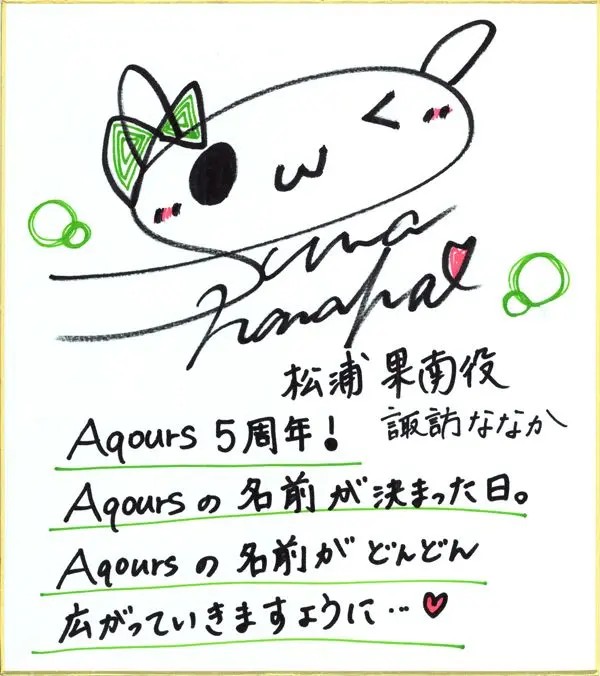 Suwa
Nanaka
松浦 果南役
諏訪ななか
Aqours 5周年!
Aqoursの名前が決まった日。
Aqoursの名前がどんどん
広がっていきますように…♥